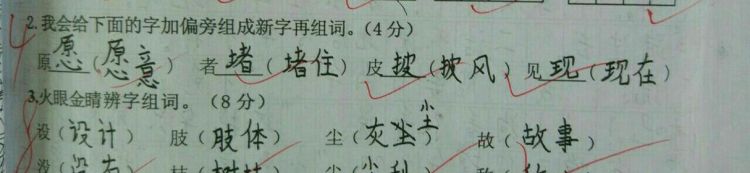 2.我会给下面的字加偏旁组成新字再组词。(4分)
原 愿 (愿意) 者 堵 (堵住) 皮 披 (披风) 见 现 (现在)
3.火眼金睛辨字组词。(8分)
设(设计) 肢(肢体) 尘(灰尘) 故(故事)
没(没有)